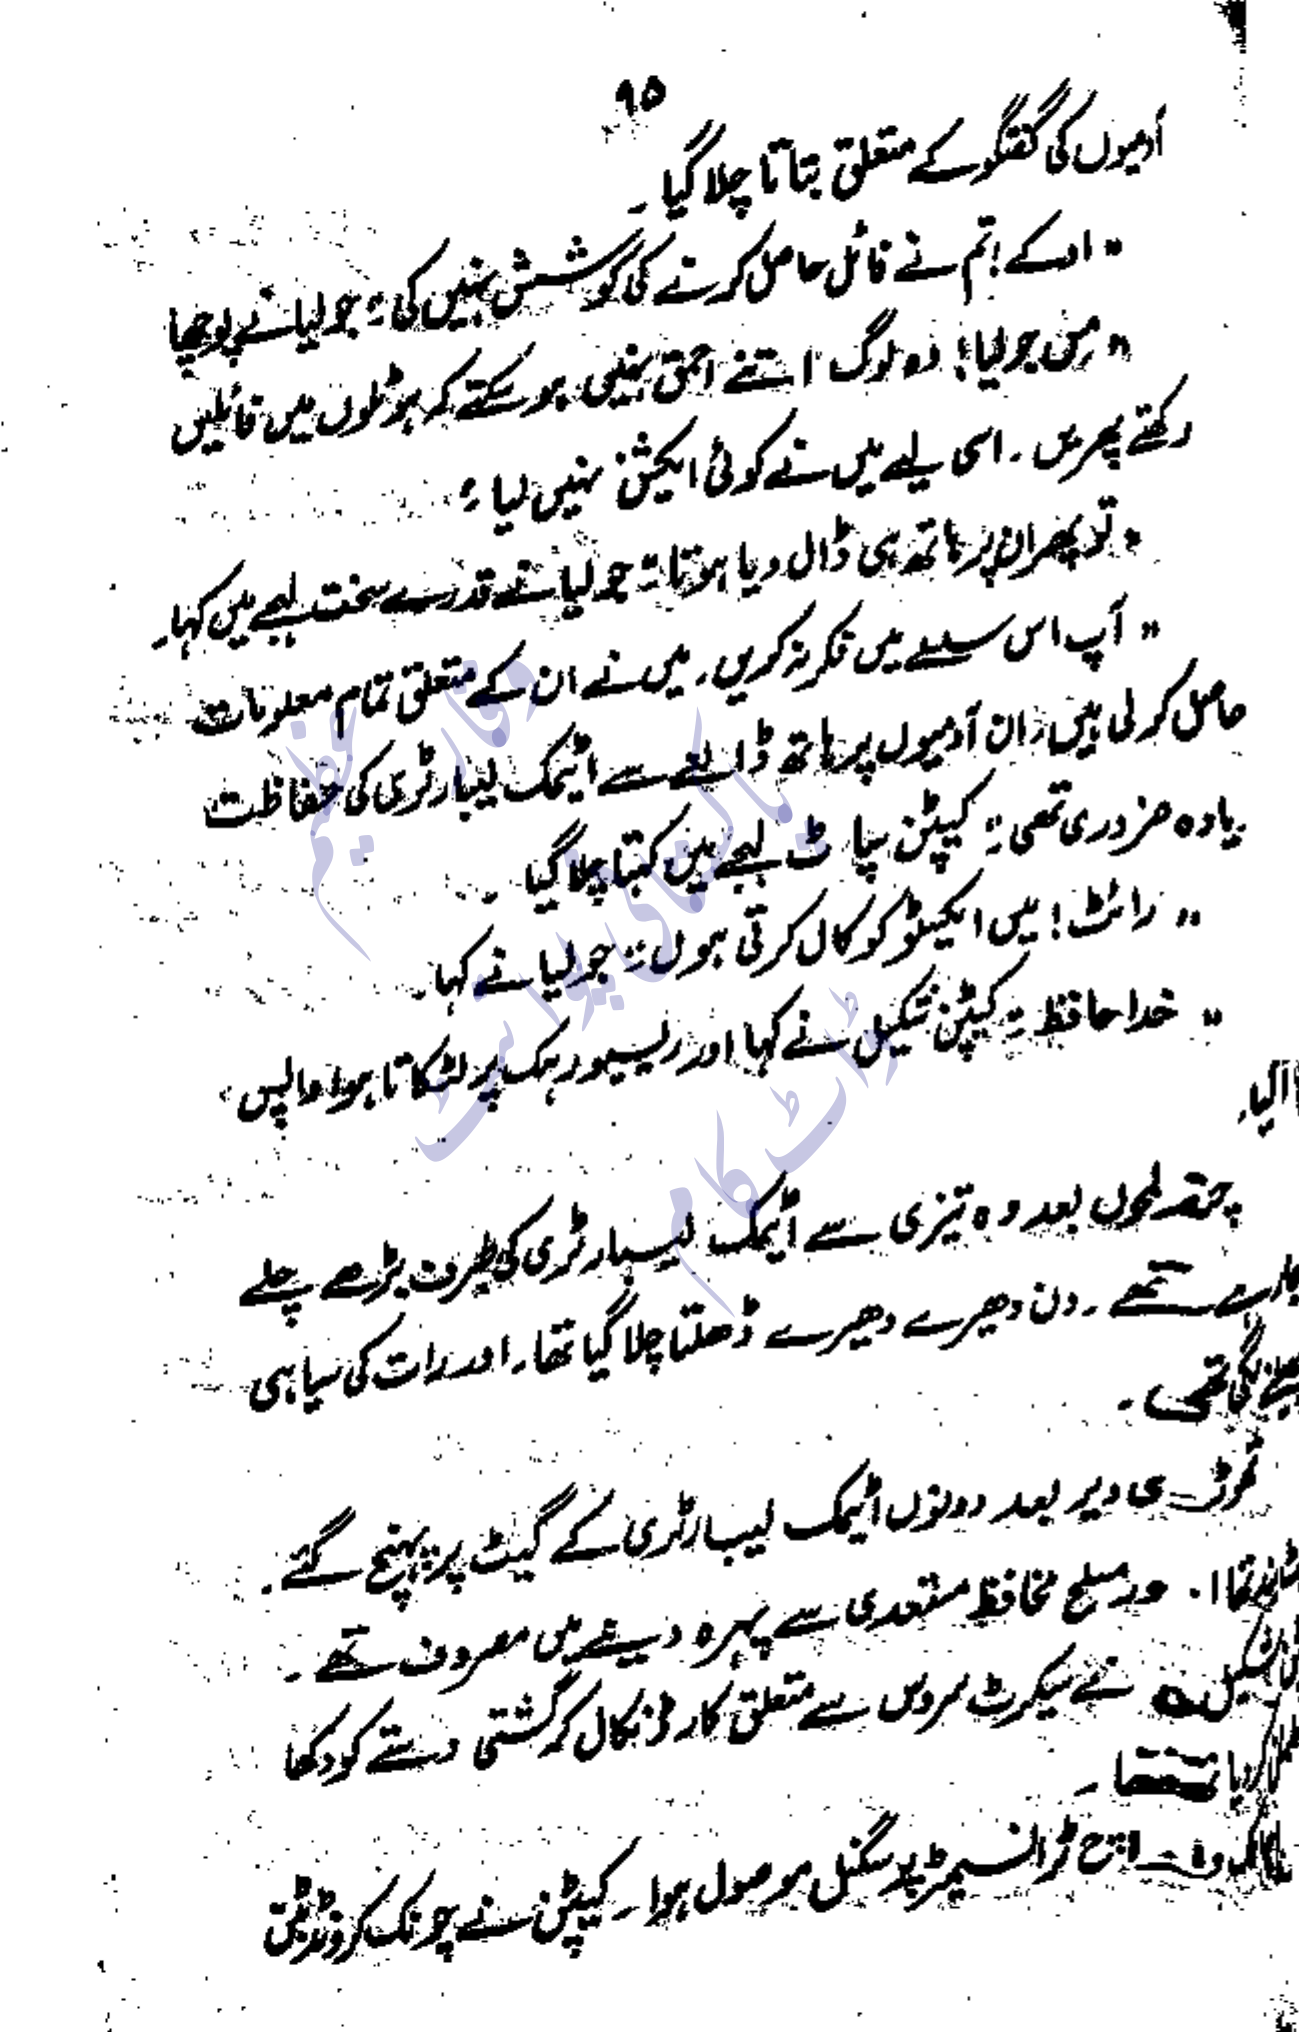 ۹۵
آدمیوں کی گفتگو کے متعلق بتاتا چلا گیا۔
"اوکے! تم نے فائل حاصل کرنے کی کوشش نہیں کی؟" جولیا نے پوچھا
"مس جولیا! وہ لوگ اتنے احمق نہیں ہو سکتے کہ ہوٹلوں میں فائلیں
رکھتے پھریں۔ اسی لیے میں نے کوئی ایکشن نہیں لیا۔"
"تو پھر ان پر ہاتھ ہی ڈال دیا ہوتا۔" جولیا نے قدرے سخت لہجے میں کہا۔
"آپ اس سلسلے میں فکر نہ کریں۔ میں نے ان کے متعلق تمام معلومات
حاصل کر لی ہیں۔ ان آدمیوں پر ہاتھ ڈالنے سے اٹیمک لیبارٹری کی حفاظت
یادہ ضروری تھی۔" کیپٹن سپاٹ لہجے میں کہتا چلا گیا۔
"رائٹ! میں ایکسٹو کو کال کرتی ہوں۔" جولیا نے کہا۔
"خدا حافظ۔" کیپٹن شکیل نے کہا اور ریسیور ہک پر لٹکاتا ہوا واپس
آ گیا۔
چند لمحوں بعد وہ تیزی سے اٹیمک لیبارٹری کی طرف بڑھے چلے
جا رہے تھے۔ دن دھیرے دھیرے ڈھلتا چلا گیا تھا۔ اور رات کی سیاہی
پھیلنے لگی تھی۔
تھوڑی دیر بعد دونوں اٹیمک لیبارٹری کے گیٹ پر پہنچ گئے۔
مسلح محافظ مستعدی سے پہرہ دینے میں مصروف تھے۔
شکیل نے سیکرٹ سروس سے متعلق کارڈ نکال کر گشتی دستے کو دکھا
کر دیا تھا۔
واچ ٹرانسمیٹر پر سگنل موصول ہوا۔ کیپٹن نے چونک کر ونڈ بٹن
وقار عظیم
پاکستانی پوائنٹ
ڈاٹ کام